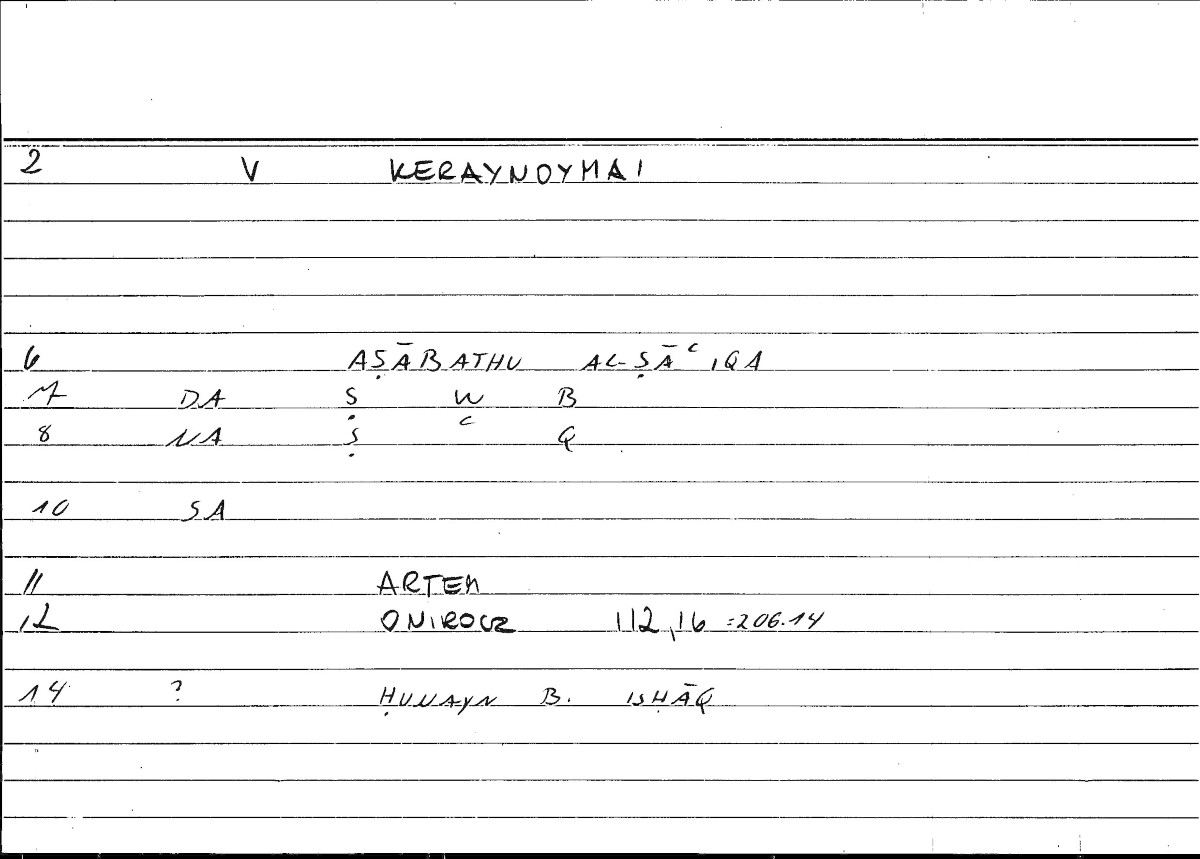 2 V KERAYNOYMAI
6 AṢĀBATHU AL-ṢĀʿIQA
7 DA Ṣ W B
8 NA Ṣ ʿ Q
10 SA
11 ARTEM
12 ONIROCR 112,16 =206.14
14 ? ḤUNAYN B. ISḤĀQ